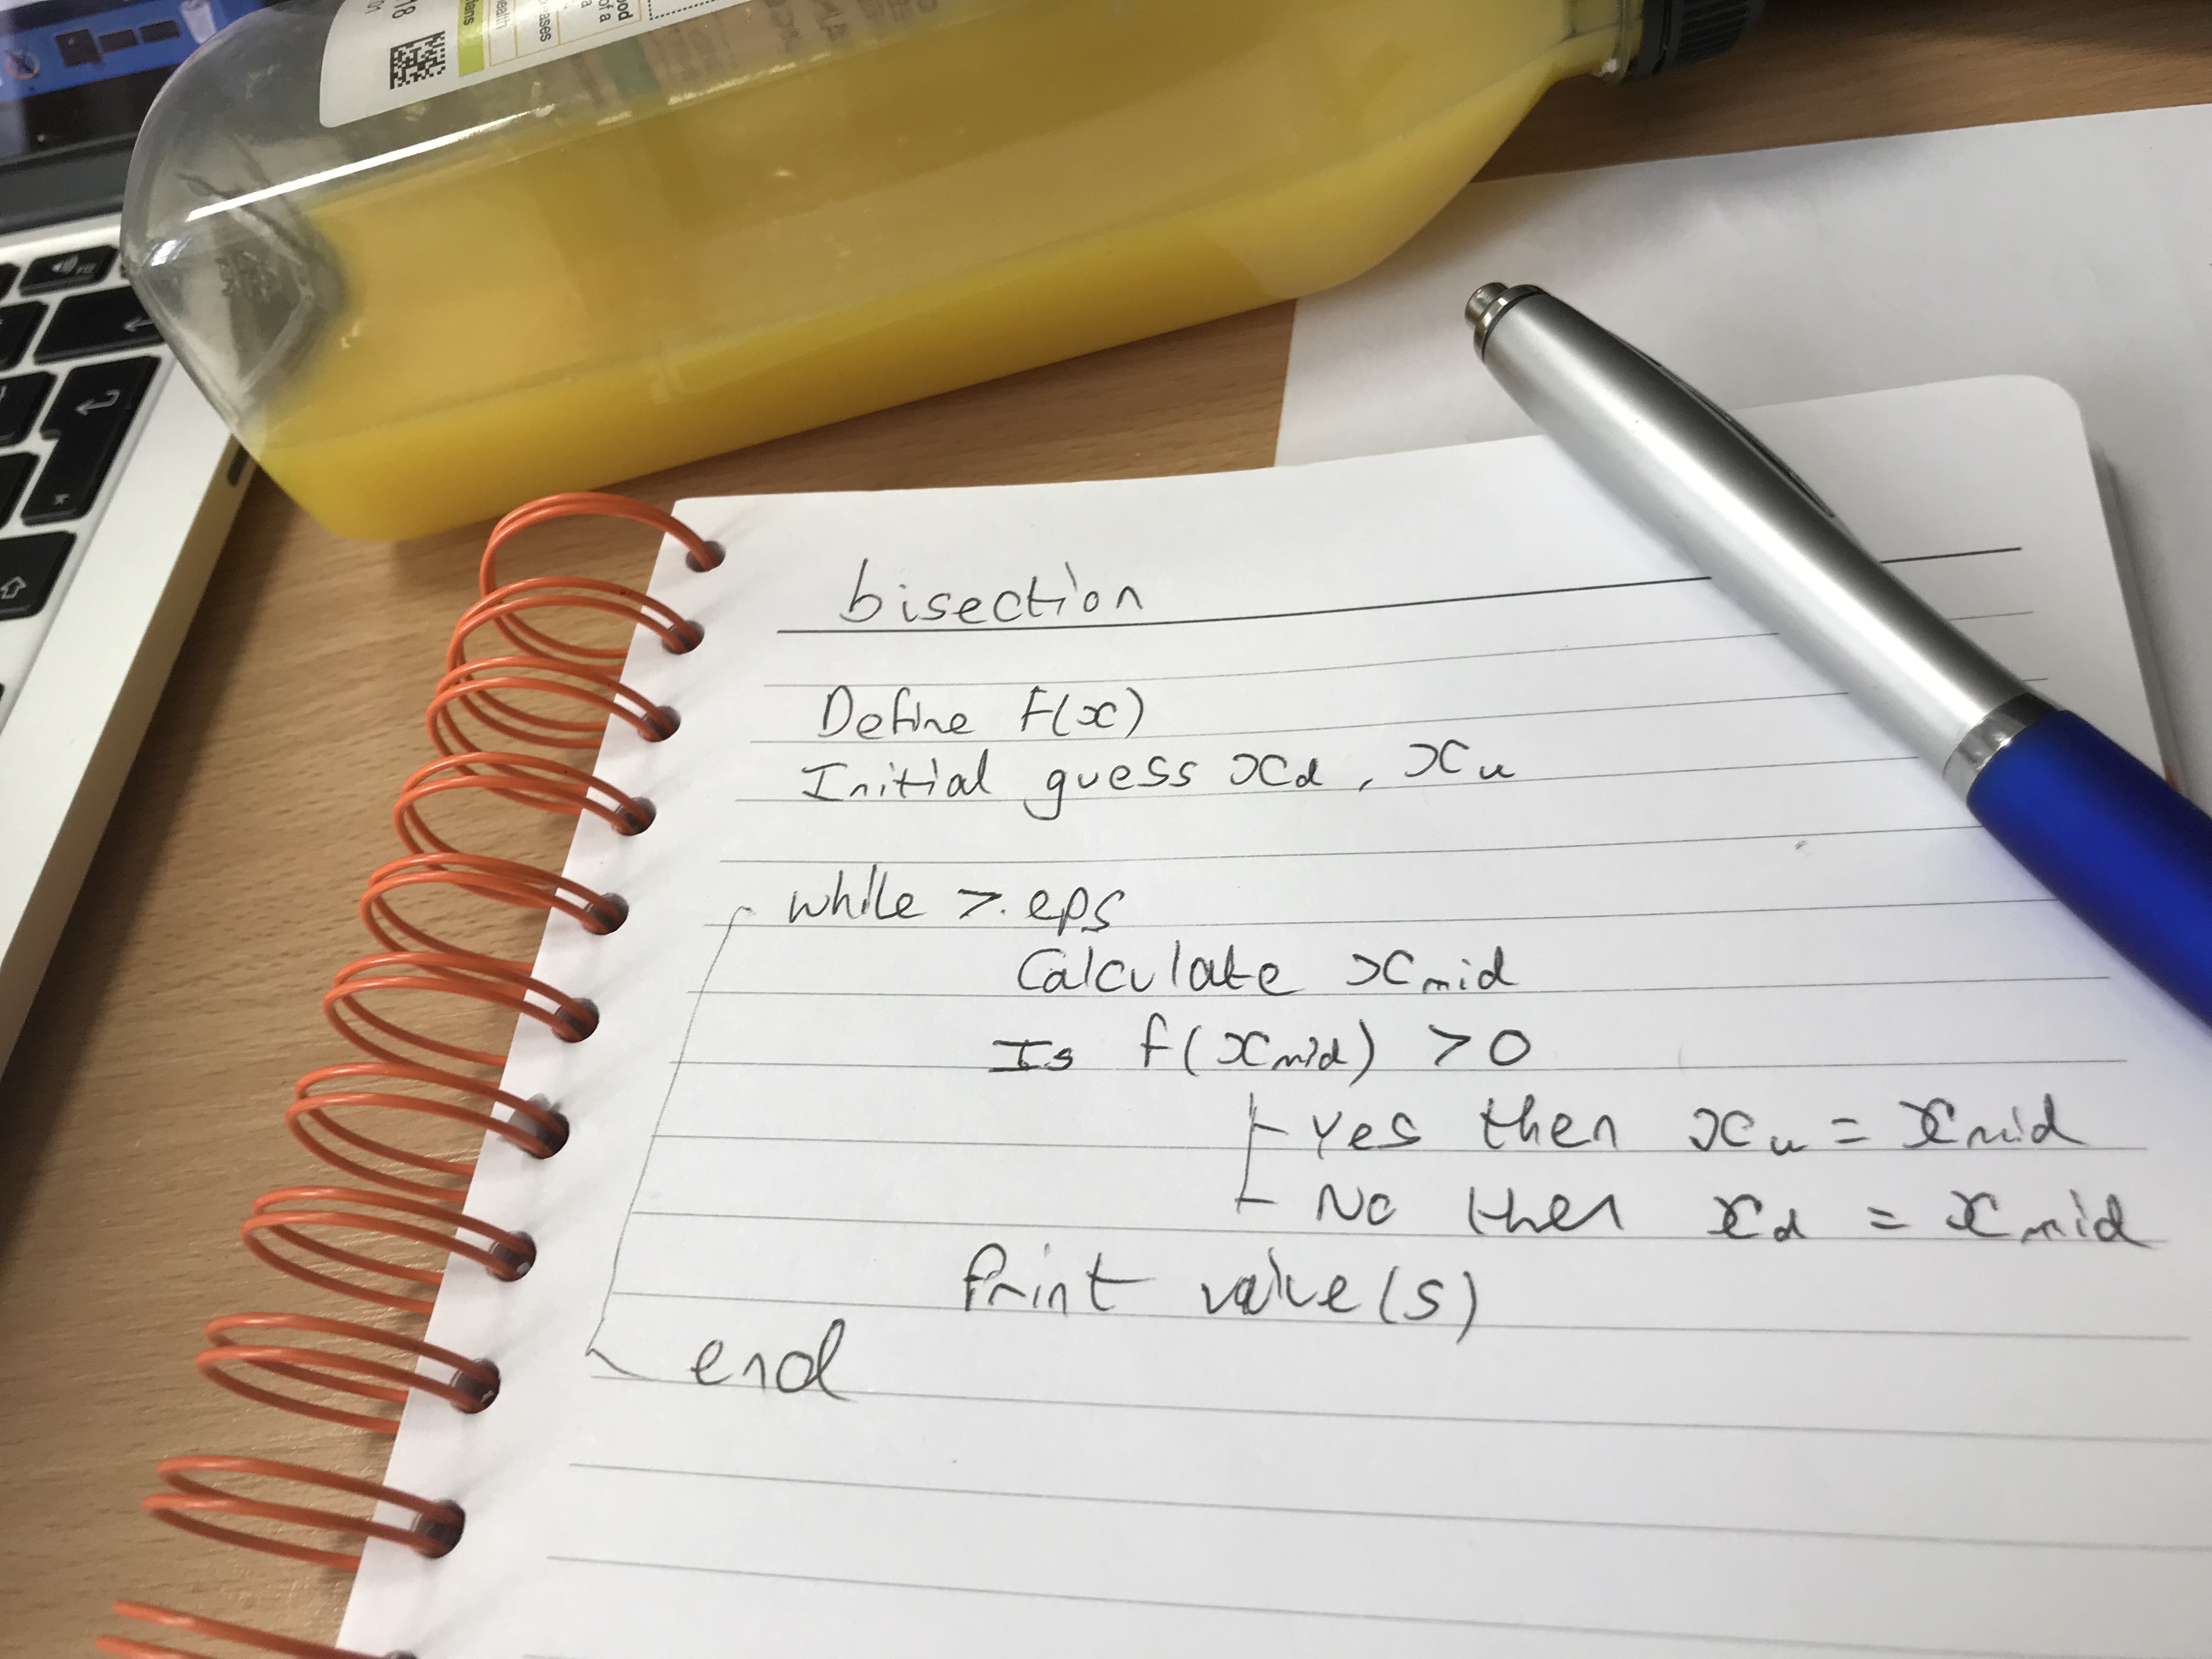 18
01
ans
health
eases
ood
of a
a
bisection
Define f(x)
Initial guess xd, xu
while > eps
Calculate xmid
Is f(xmid) > 0
Yes then xu = xmid
No then xd = xmid
Print value(s)
end